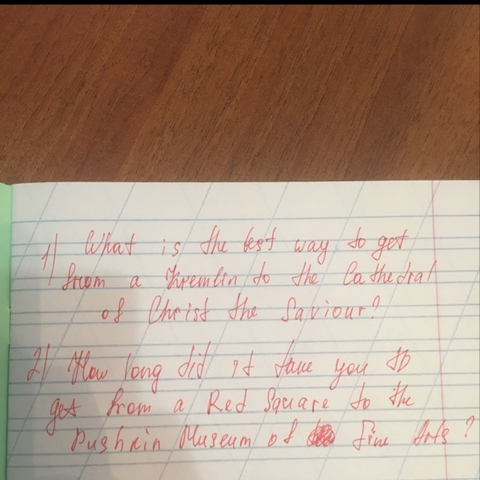 1) What is the best way to get
from a Kremlin to the Cathedral
of Christ the Saviour?
2) How long did it take you to
get from a Red Square to the
Pushkin Museum of Fine Arts?